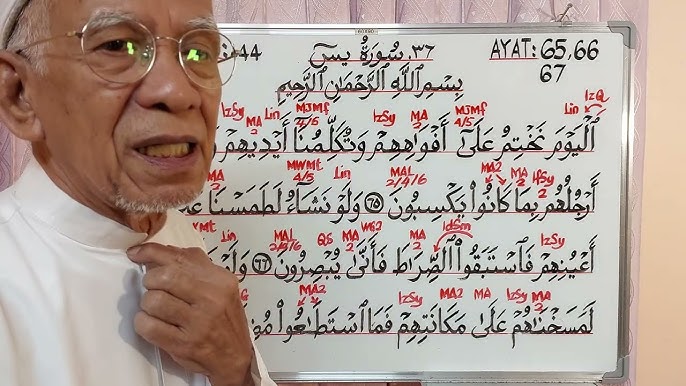 :44 ٣٧. سُورَةُ يسٓ AYAT: 65,66
67
بِسْمِ ٱللَّهِ ٱلرَّحْمَٰنِ ٱلرَّحِيمِ
IzSy MA 2 Lin MJMf 4/5 IzSy MA 2 MJMf 4/5 Lin IzQ
ٱلْيَوْمَ نَخْتِمُ عَلَىٰٓ أَفْوَاهِهِمْ وَتُكَلِّمُنَآ أَيْدِيهِمْ
MA 2 MWMt 4/5 Lin MAL 2/4/6 MA2 MA 2 IfSy 2
أَرْجُلُهُم بِمَا كَانُوا۟ يَكْسِبُونَ ٦٥ وَلَوْ نَشَآءُ لَطَمَسْنَا
Mt Lin MAL 2/4/6 QS MA 2 WG2 MA 2 IdSm IzSy
أَعْيُنِهِمْ فَٱسْتَبَقُوا۟ ٱلصِّرَٰطَ فَأَنَّىٰ يُبْصِرُونَ ٦٦ وَلَوْ
MA2 IzSy MA2 MA IzSy MA 2
لَمَسَخْنَٰهُمْ عَلَىٰ مَكَانَتِهِمْ فَمَا ٱسْتَطَٰعُوا۟